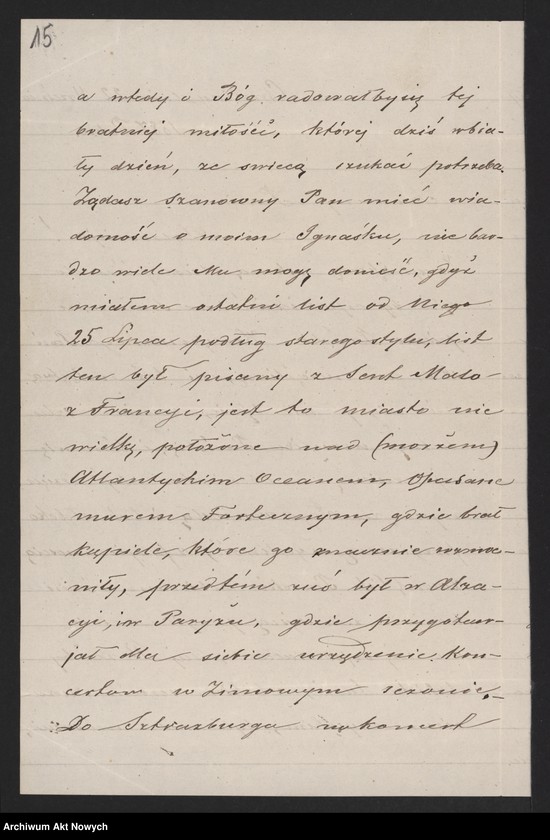 15
a wtedy i Bóg radowałby się tej
bratniej miłości, której dziś w bia-
ły dzień, ze swiecą szukać potrzeba.
Żądasz Szanowny Pan mieć wia-
domość o moim Ignaśku, nie bar-
dzo wiele Mu mogę donieść, gdyż
miałem ostatni list od Niego
25 Lipca podług starego stylu, list
ten był pisany z Sent Malo
z Francyi, jest to miasto nie
wielkę, położone nad (morżem)
Atlantyckim Oceanem, Opasane
murem Fortecznym, gdzie brał
kąpiele, które go znacznie wzmo-
niły, przedtém zaś był w Alza-
cyi, i w Paryżu, gdzie przygotow-
jał dla siebie urządzenie Kon-
certow w Zimowym sezonie,
Do Sztrazburga na koncert
Archiwum Akt Nowych